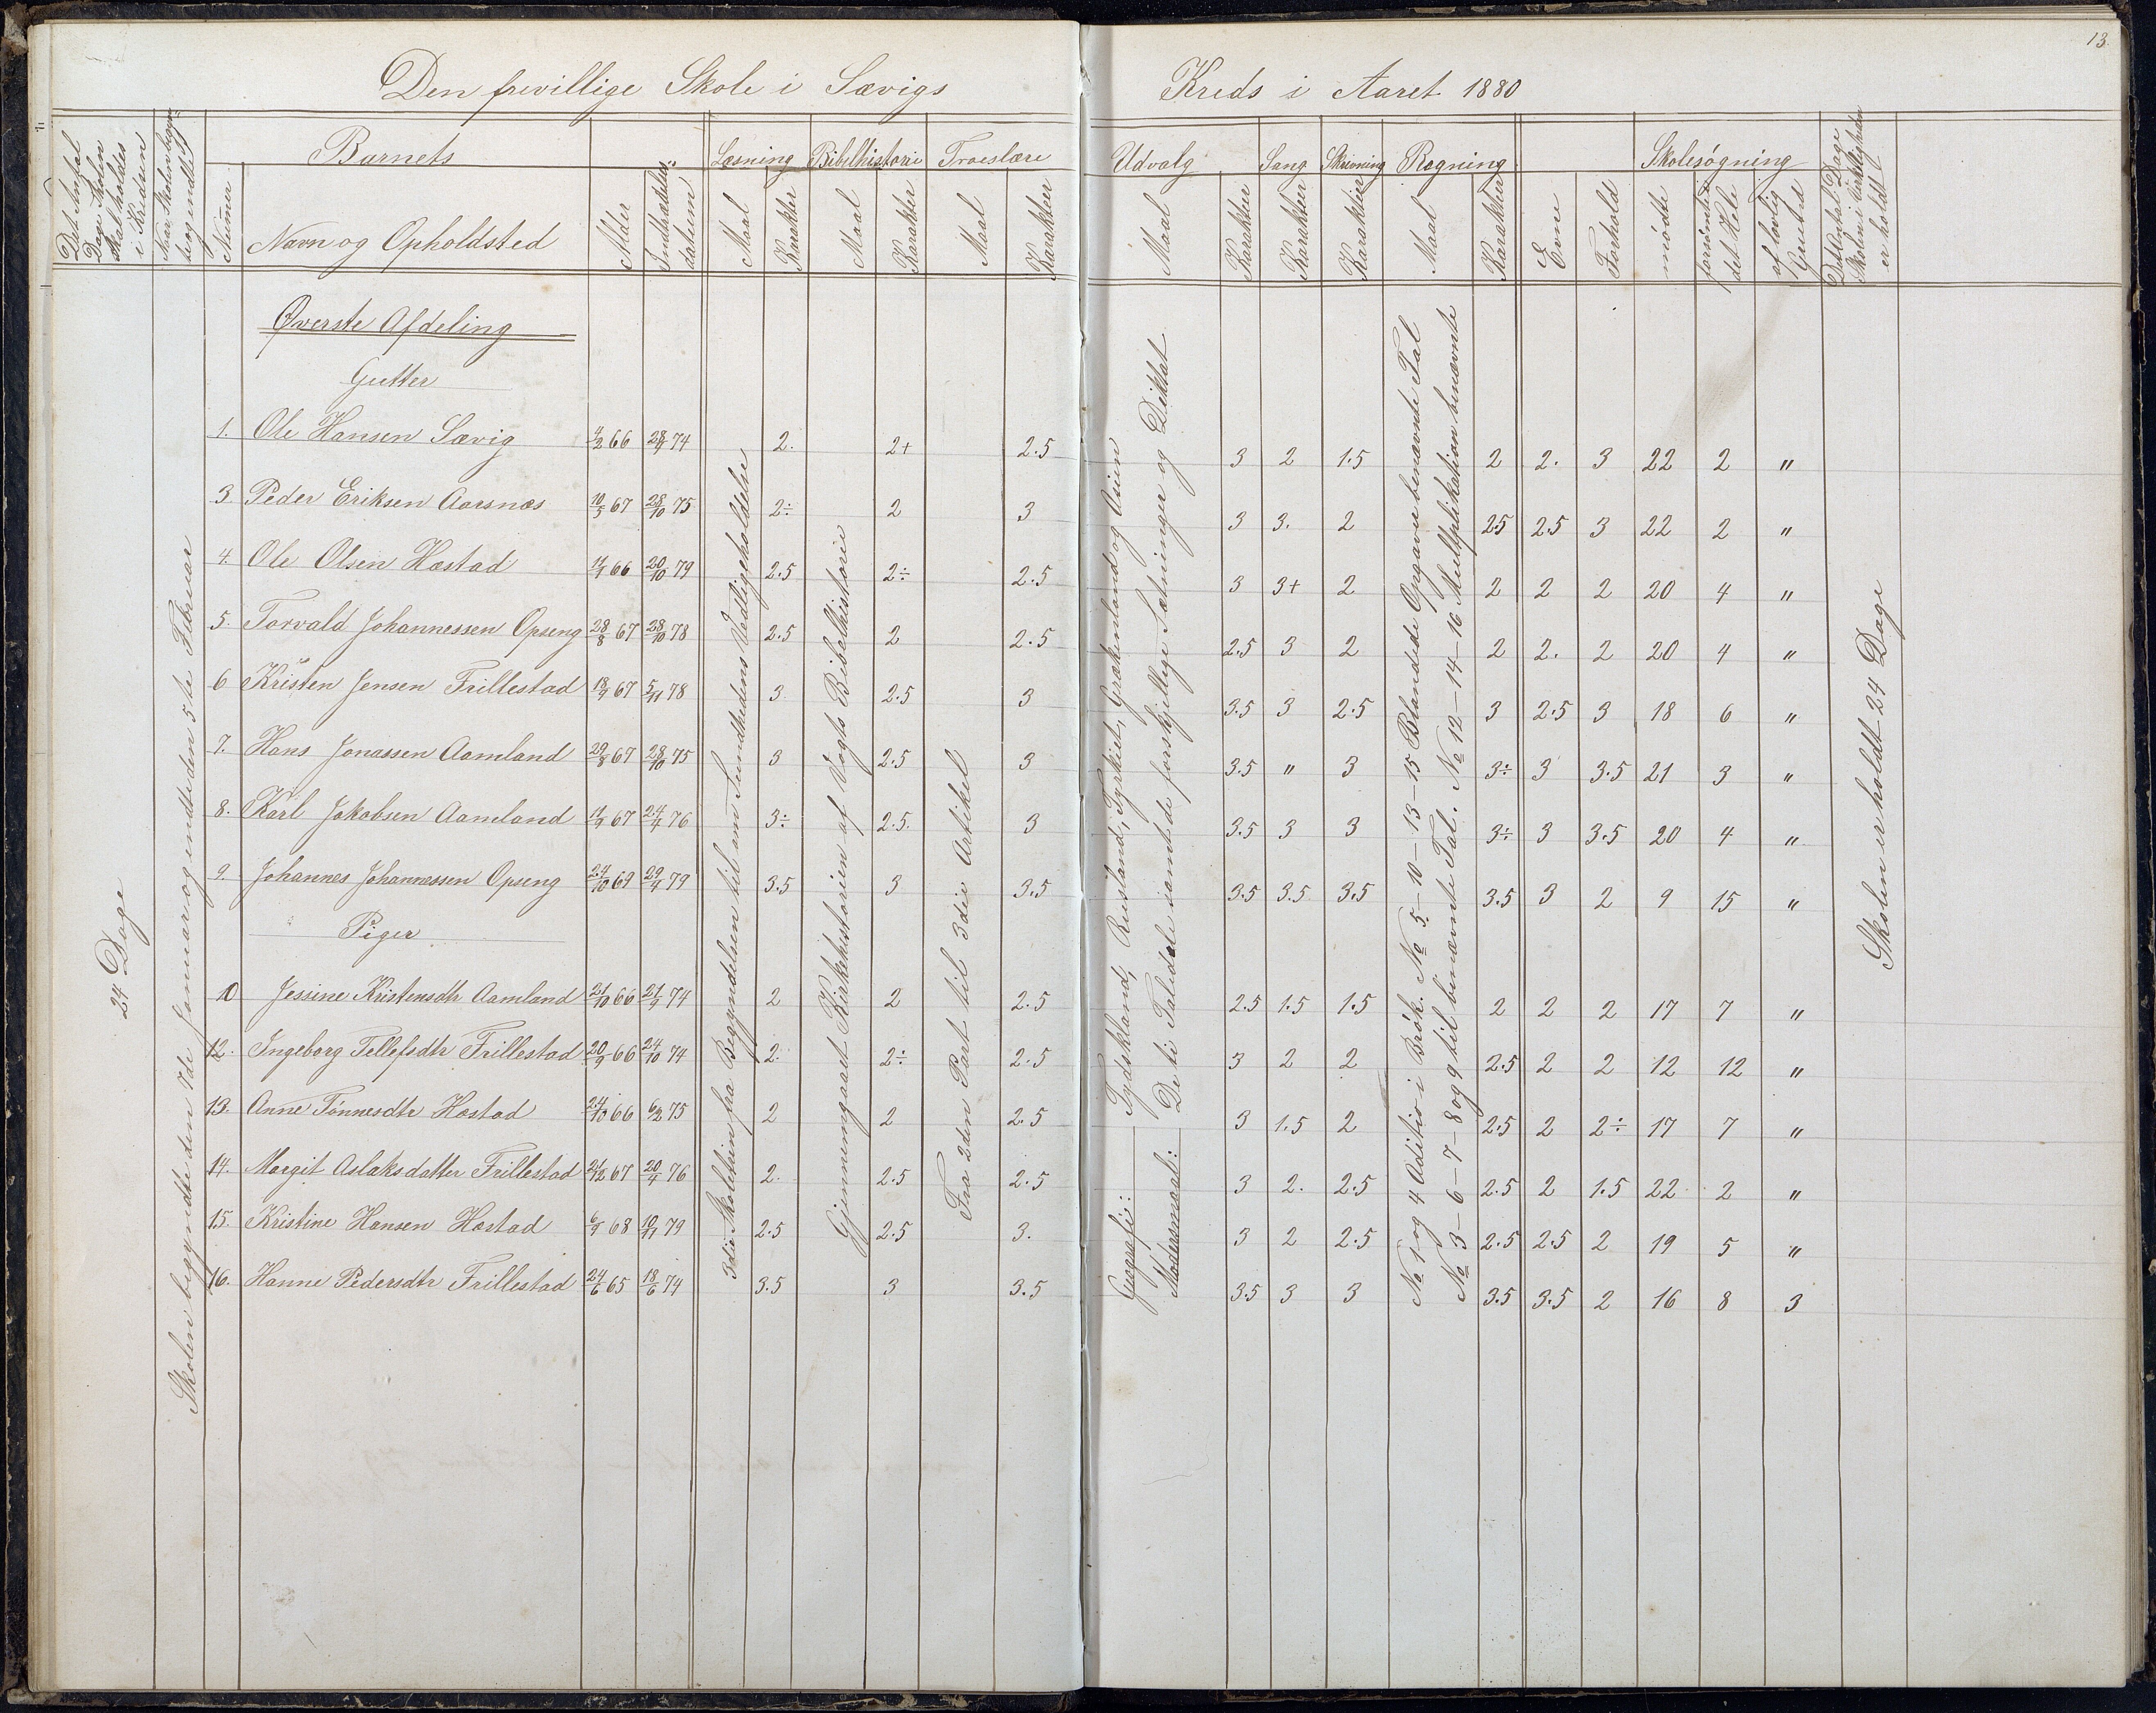 13.
Den frivillige Skole i Sævigs Kreds i Aaret 1880
Det Antal Dage Skolen skal holdes i Kredsen
Naar Skolen begyndte og endte
Numer
Barnets
Navn og Opholdsted
Alder
Indtrædelsesdatum
Læsning
Maal
Karakter
Bibelhistorie
Maal
Karakter
Troeslære
Maal
Karakter
Udvalg
Maal
Karakter
Sang
Karakter
Skrivning
Karakter
Regning
Maal
Karakter
Evne
Forhold
Skolesøgning
mødte
forsømte det Hele
af lovlig Grund
Det Antal Dage Skolen i Virkeligheden er holdt
24 Dage
Skolen begyndte den 7de Januar og endte den 5te Februar
Øverste Afdeling
Gutter
1. Ole Hansen Sævig 4/2 66 28/9 74 2. 2+ 2.5 3 2 1.5 2 2. 3 22 2 "
3. Peder Eriksen Aarsnæs 10/5 67 28/10 75 2÷ 2 3 3 3. 2 2.5 2.5 3 22 2 "
4. Ole Olsen Hæstad 66 20/10 79 2.5 2÷ 2.5 3 3+ 2 2 2 2 20 4 "
5. Torvald Johannessen Opseng 28/8 67 28/10 78 2.5 2 2.5 2.5 3 2 2 2. 2 20 4 "
6 Kristen Jensen Frillestad 18/9 67 5/11 78 3. 2.5 3 3.5 3 2.5 3 2.5 3 18 6 "
7. Hans Jonassen Aamland 29/8 67 28/10 75 3 2.5 3 3.5 " 3 3÷ 3 3.5 21 3 "
8. Karl Jakobsen Aamland 11/9 67 24/4 76 3÷ 2.5. 3 3.5 3 3 3÷ 3 3.5 20 4 "
9. Johannes Johannessen Opseng 27/10 69 29/4 79 3.5 3 3.5 3.5 3.5 3.5 3.5 3 2 9 15 "
Piger
10 Jessine Kristensdtr Aamland 21/10 66 21/9 74 2 2 2.5 2.5 1.5 1.5 2 2 2 17 7 "
12. Ingeborg Tellefsdtr Frillestad 20/9 66 24/10 74 2. 2÷ 2.5 3 2 2 2.5 2 2 12 12 "
13. Anne Tønnesdtr Hæstad 24/10 66 6/2 75 2 2 2.5 3 1.5 2 2.5 2 2÷ 17 7 "
14. Margit Aslaksdatter Frillestad 21/12 67 20/4 76 2. 2.5 2.5 3 2. 2.5 2.5 2 1.5 22 2 "
15. Kristine Hansen Hæstad 6/9 68 10/11 79 2.5 2.5 3. 3 2 2.5 2.5 2.5 2 19 5 "
16. Hanne Pedersdtr Frillestad 24/6 65 18/6 74 3.5 3 3.5 3.5 3 3 3.5 3.5 2 16 8 3
3die Skoletrin fra Begyndelsen til om Sundhedens Vedligeholdelse
Gjennemgaaet Kirkehistorien af Vogts Bibelhistorie
Fra 2den Part til 3die Artikel
Geografi: Tydskland, Rusland, Tyrkiet, Grækenland og Asien
Modersmaal: De ti Taledele samt de forskjellige Sætninger og Diktat
No 1 og 4 Aditio i Brøk. No 5-10-13-15 Blandede Opgaver benævnte Tal
No 3-6-7-8 og 9 til benævnte Tal. No 12-14-16 Multiplikation benævnte
Skolen er holdt 24 Dage